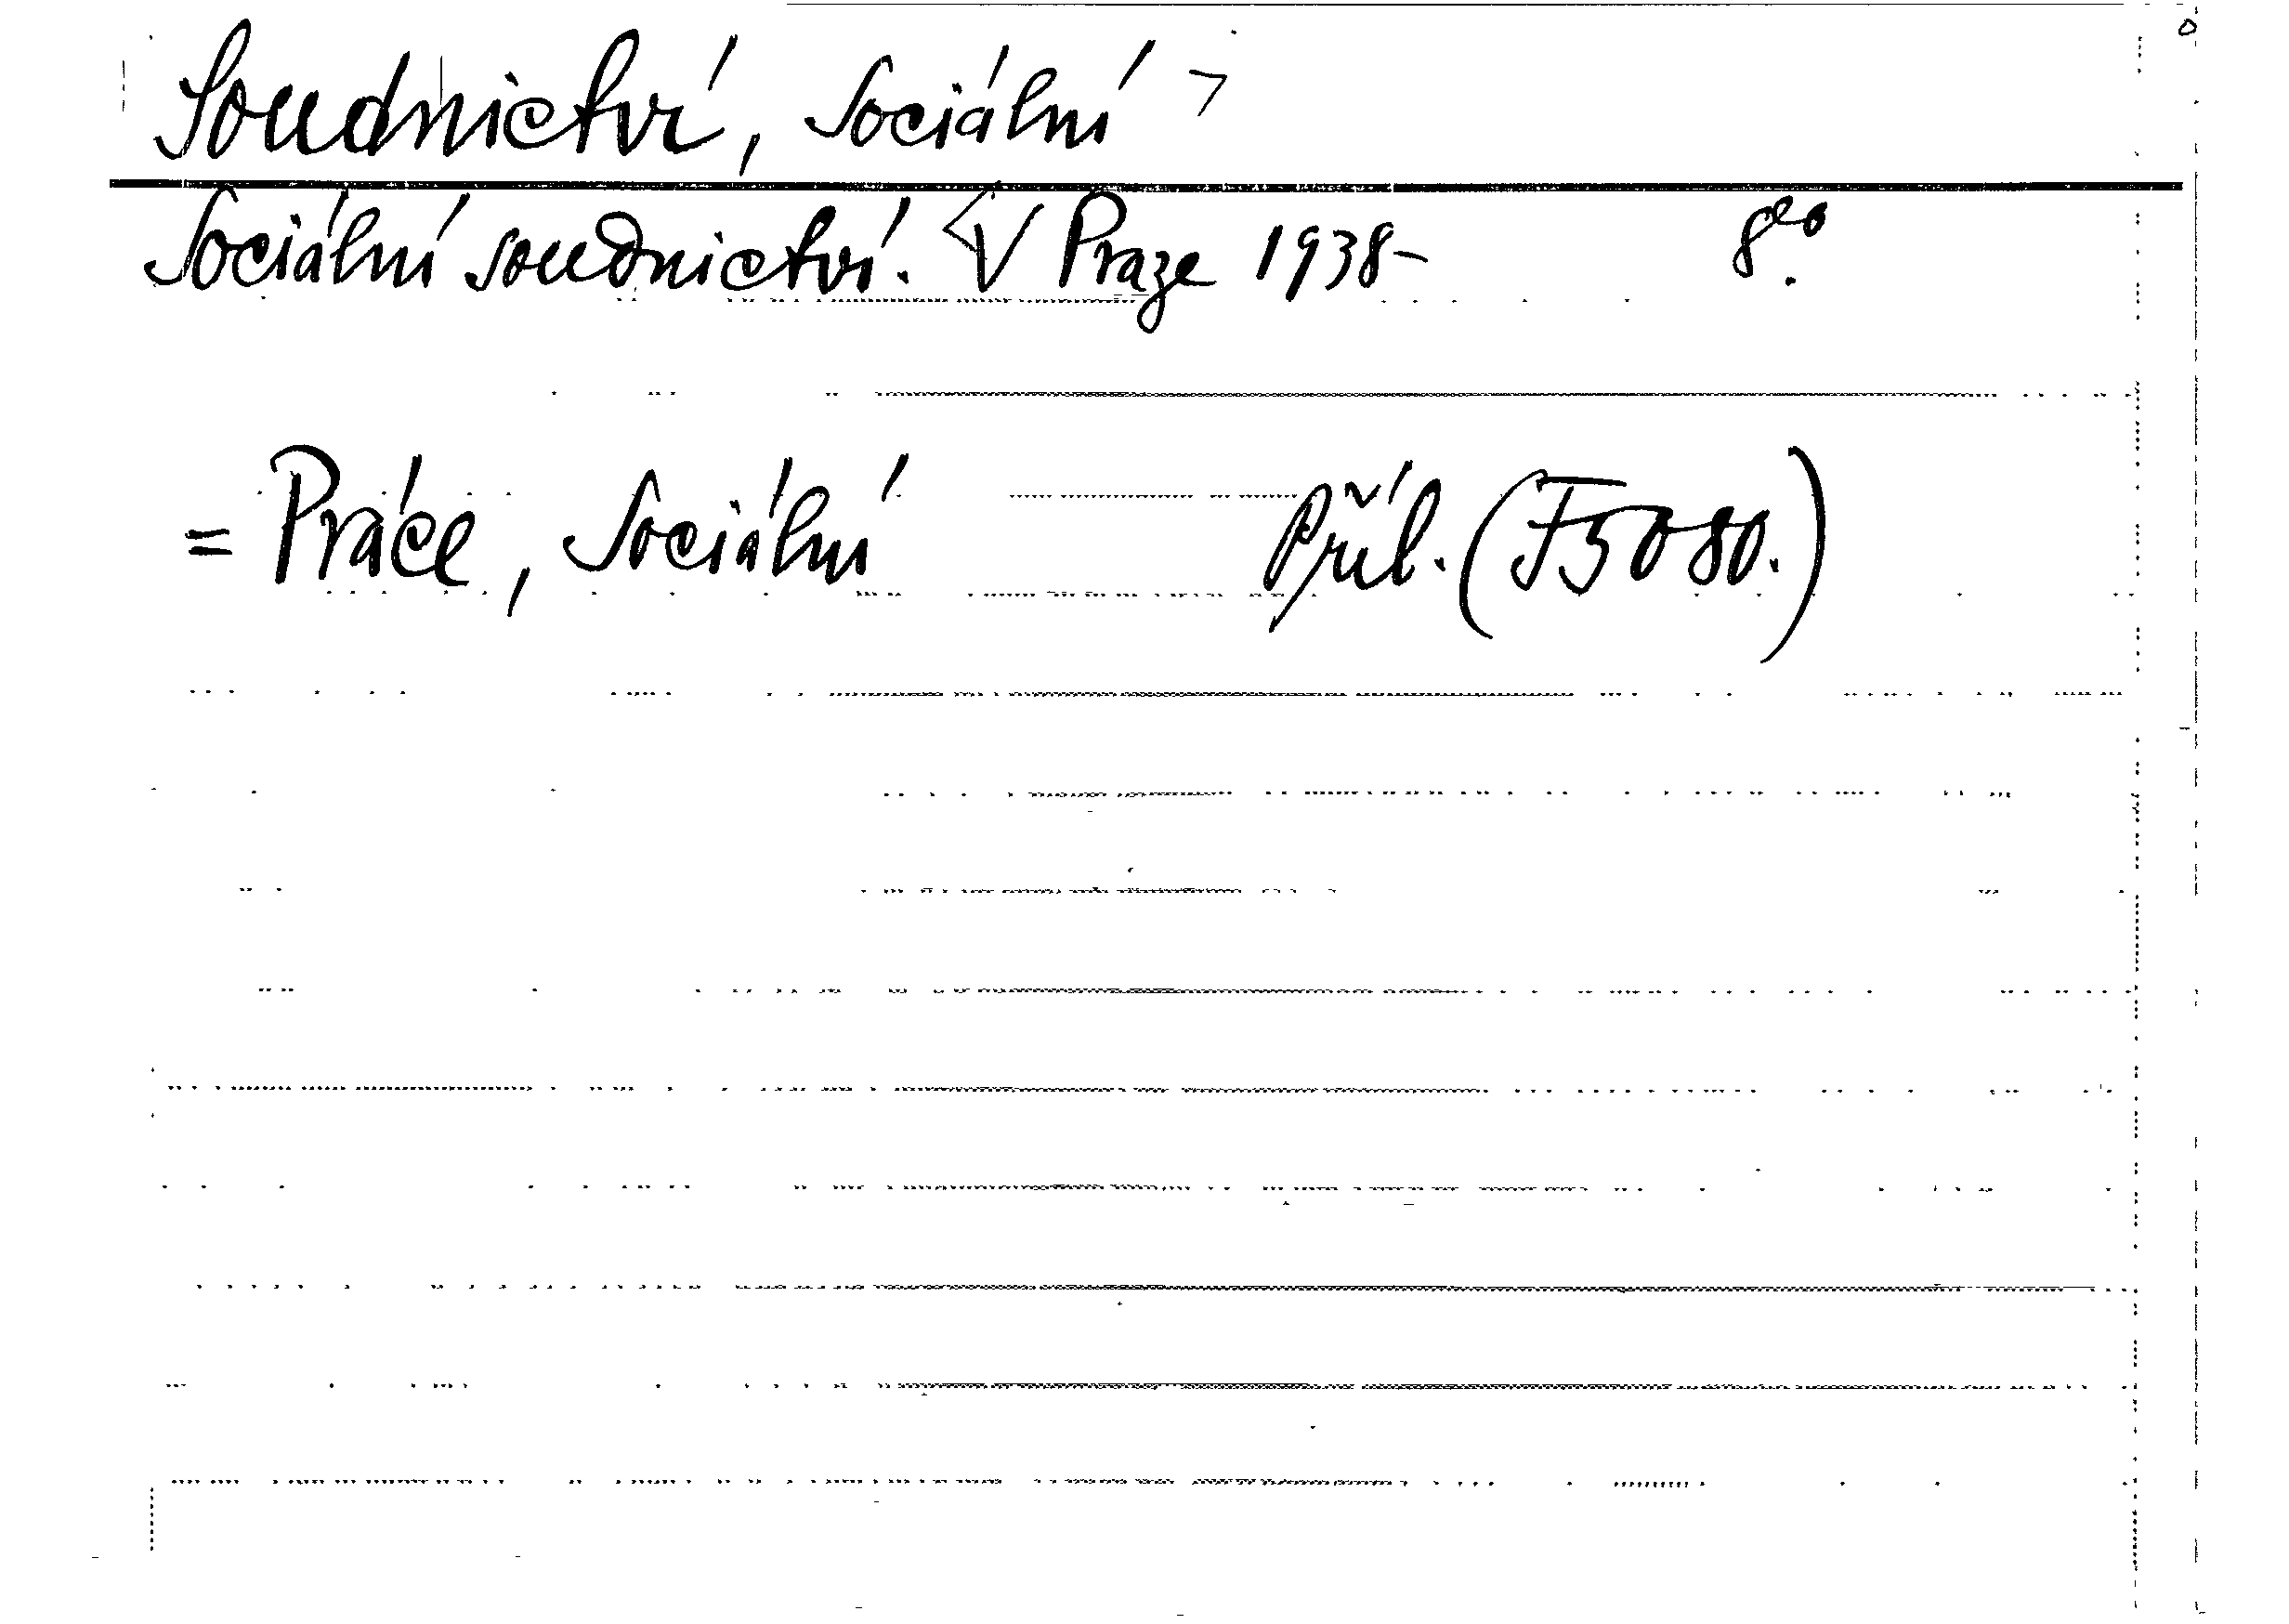 Soudnictví, Sociální
Sociální soudnictví. V Praze 1938- 8eo.
= Práce, Sociální Příl. (F5080.)